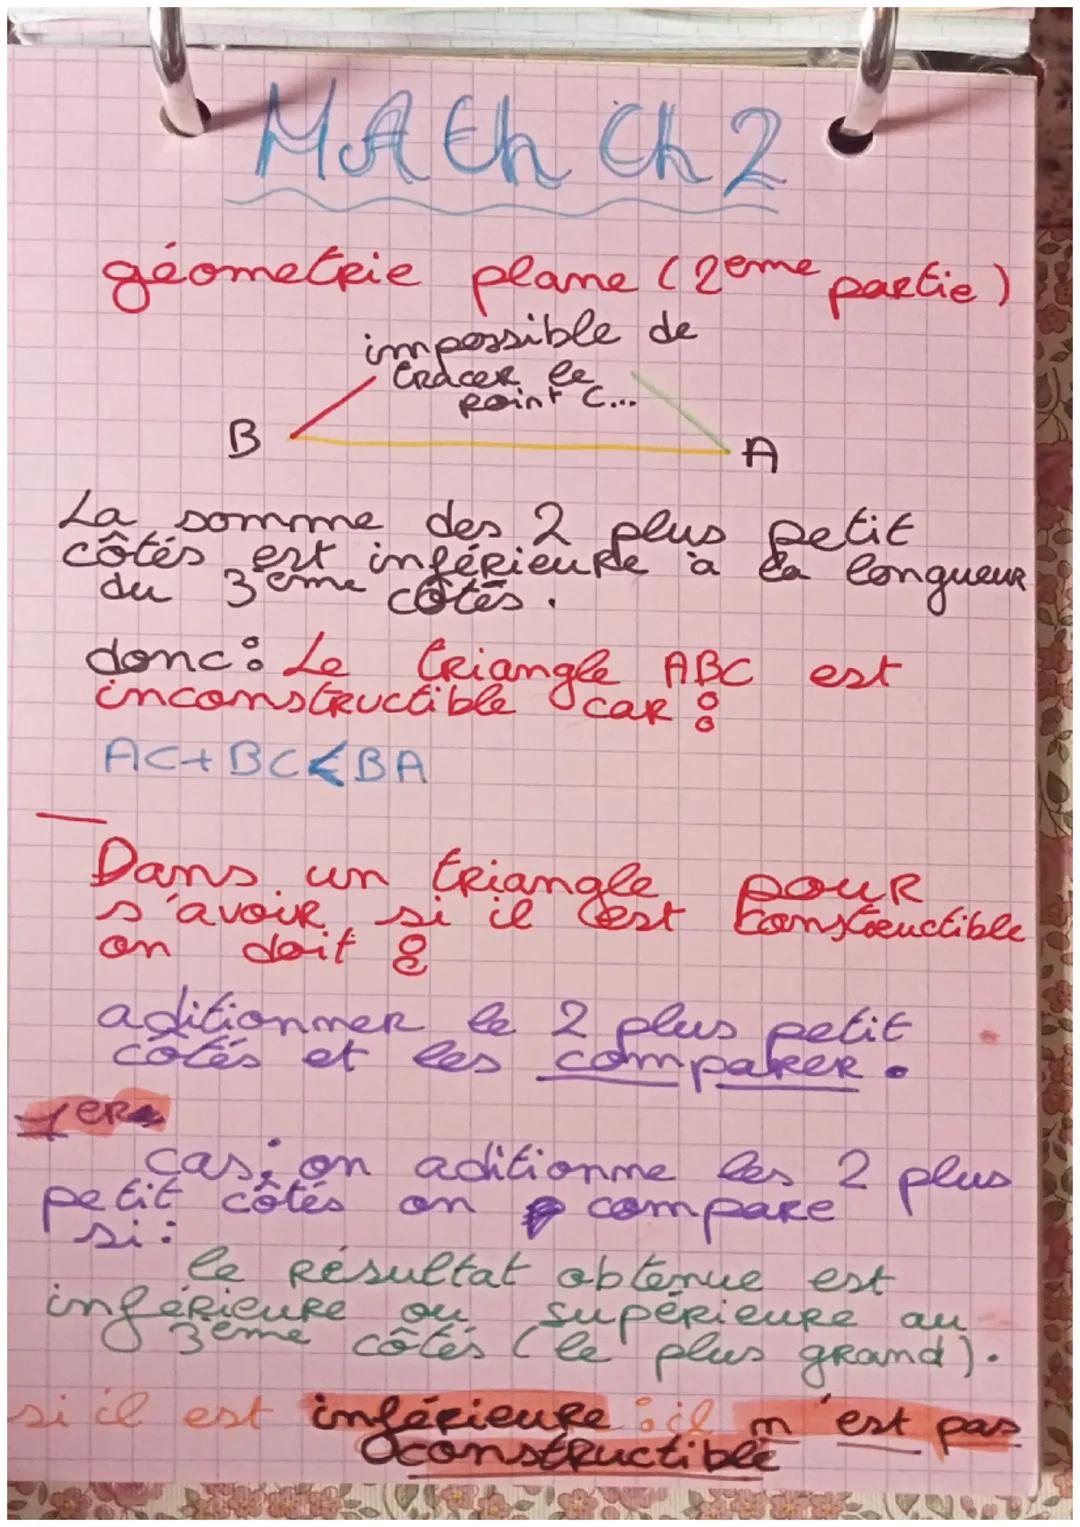 MAth Ch 2
géometrie plane (2eme partie)
impossible de
tracer le
point C...
B
A
La somme des 2 plus petit
côtés est inférieure à la longueur
du 3ème côtés.
donc : Le triangle ABC est
inconstructible car :
AC+BC<BA
Dans un triangle pour
s'avoir si il est constructible
on doit :
aditionner le 2 plus petit
côtés et les comparer.
1er
cas : on aditionne les 2 plus
petit côtés on compare
si :
le résultat obtenue est
inférieure ou supérieure au
3ème côtés (le plus grand).
si il est inférieure : il n'est pas
constructible